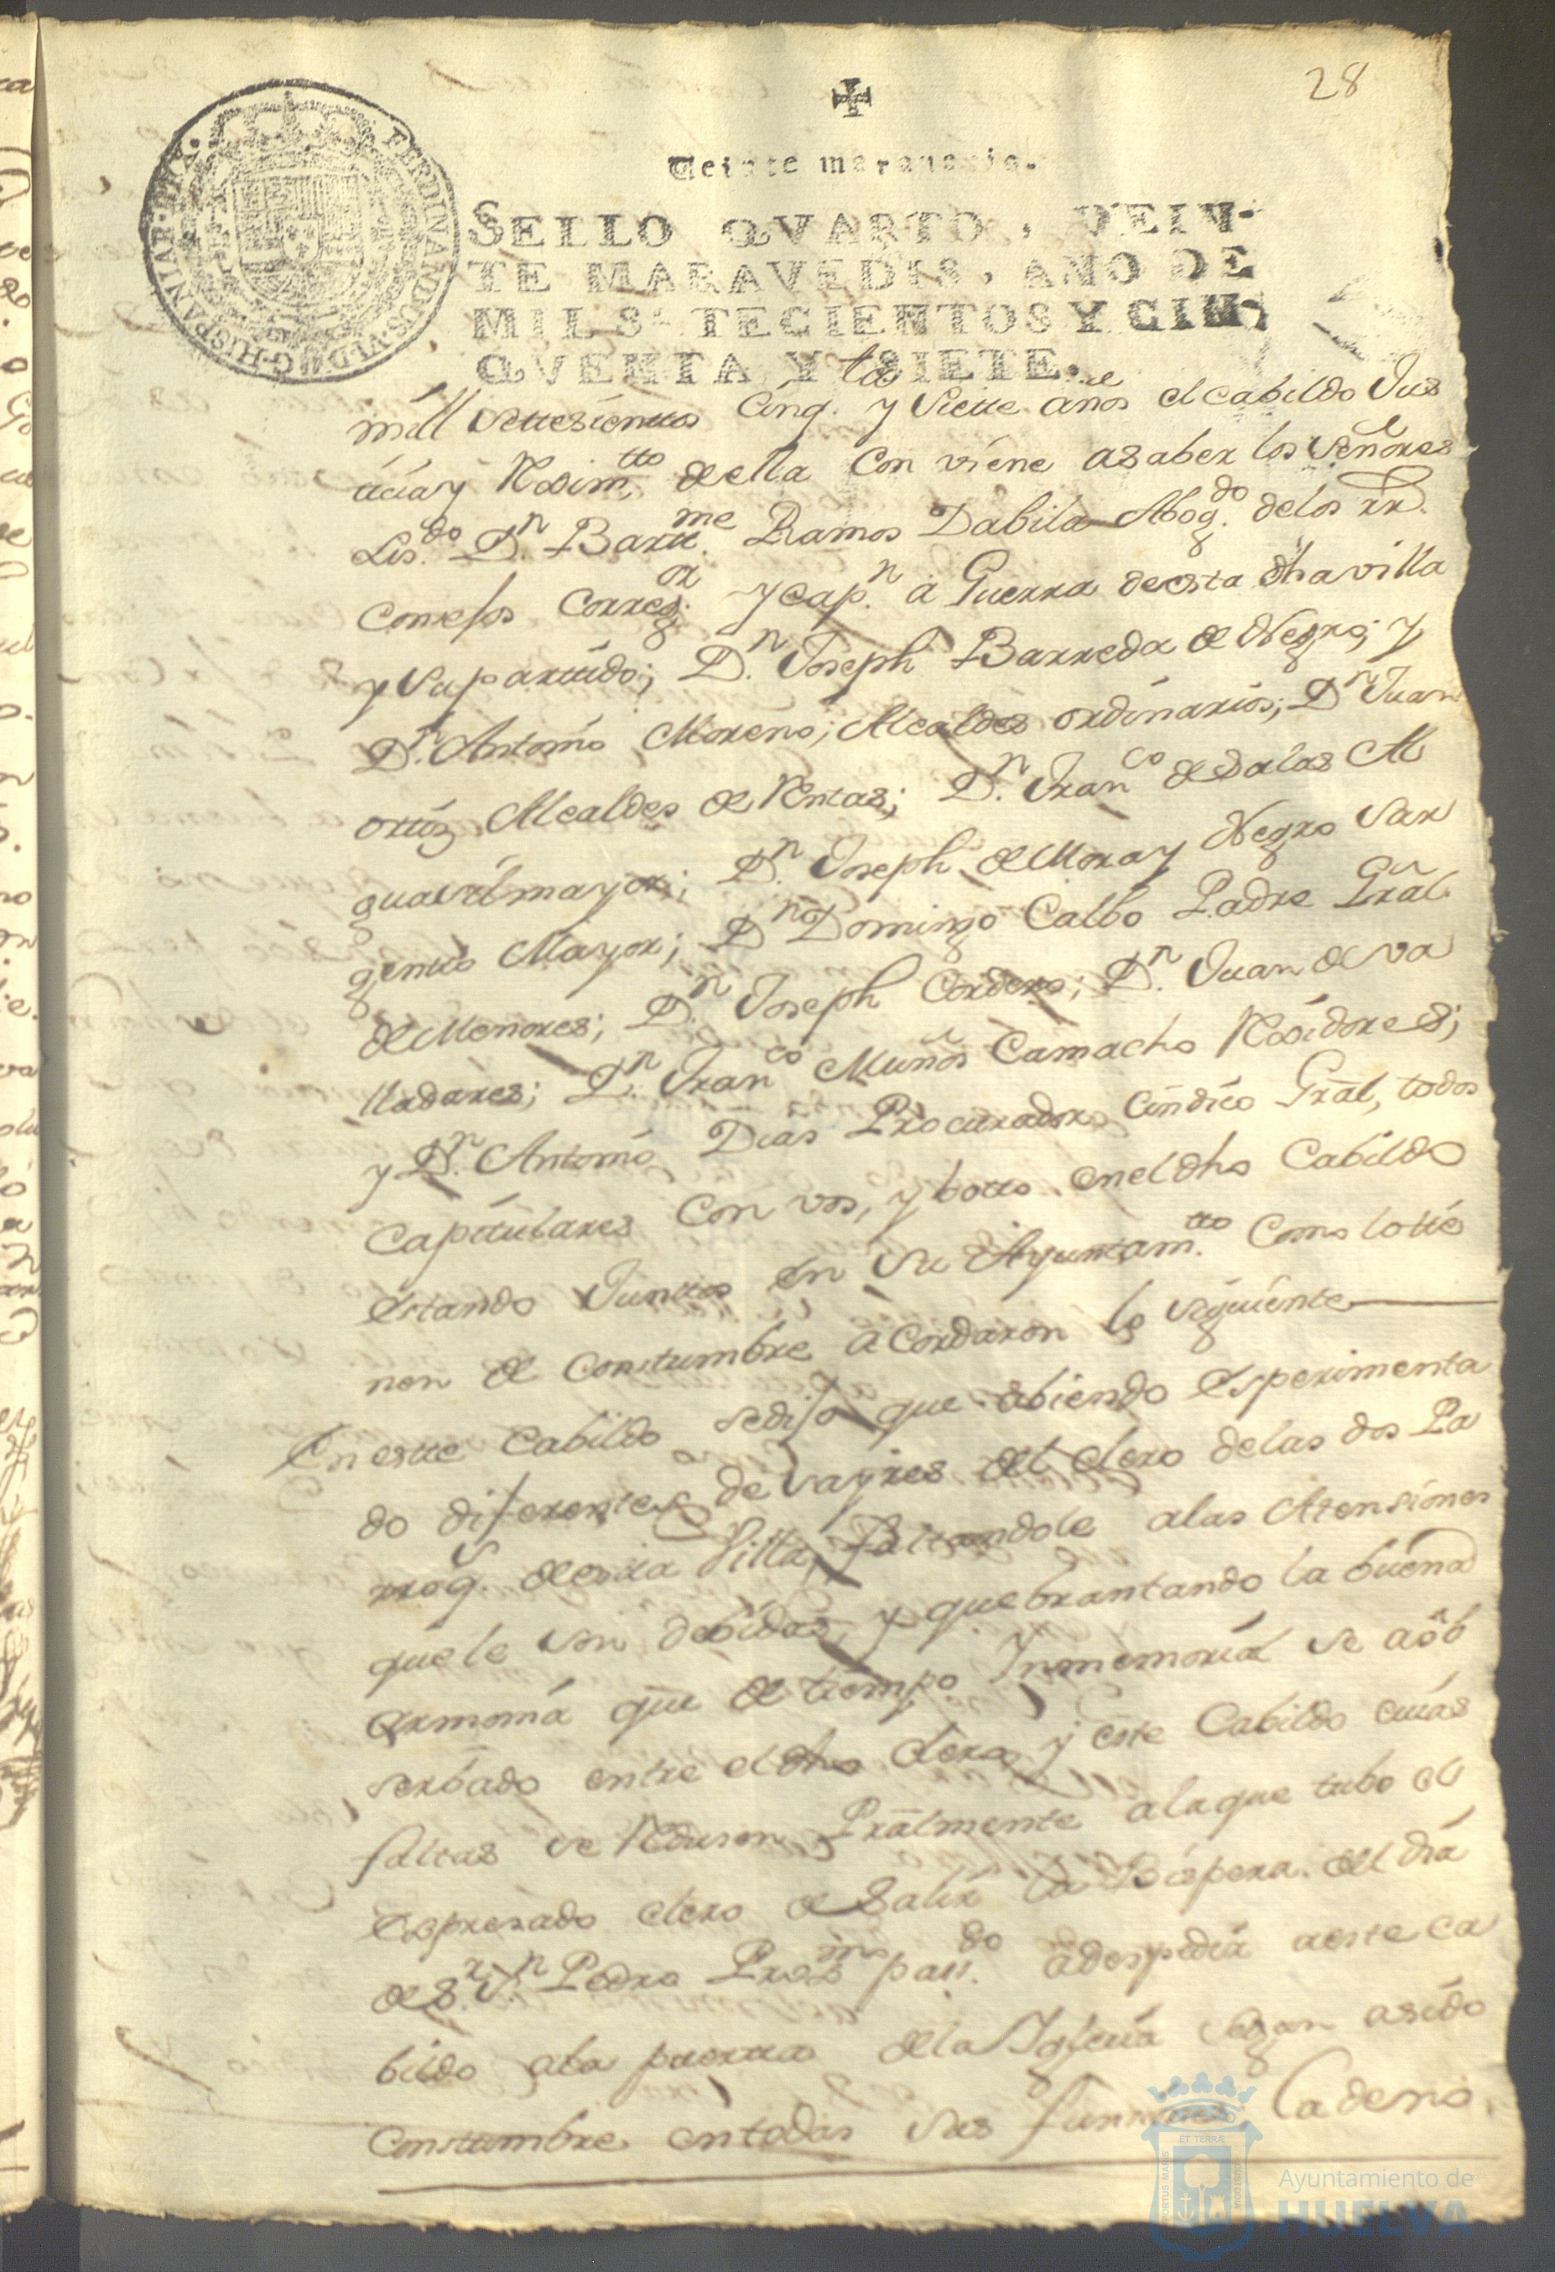 28
✠
Veinte maravedis.
SELLO QVARTO, VEIN-
TE MARAVEDIS, AÑO DE
MIL SETECIENTOS Y CIN-
QVENTA Y SIETE.
FERDINANDUS VI D G HISPANIAR REX
mill settesientos Cinq.ta y Siette años el cabildo Jus
ticia y Reximtto. della Con viene asaber los señores
Lis.do D.n Bartt.me Ramos Dabila Abog.do de los rr.s
Consejos Correg.or y cap.n a Guerra de esta dha villa
y su parttido; D.n Joseph Barreda de Negro; y
D.n Antonio Moreno; Alcaldes ordinarios; D.n Juan
orttiz Alcaldes de Rentas; D.n Fran.co de Salas Al
guasil mayor; D.n Joseph de Mora y Negro Sar
gentto Mayor; D.n Domingo Calbo Padre Gral
de Menores; D.n Joseph Cordero; D.n Juan de Va
lladares; D.n Fran.co Muños Camacho Rexidores;
y D.n Antonio Dias Procurador Cindico Gral, todos
Capitulares Con vos, y botto en el dho Cabildo
estando Junttos en su Ayuntam.tto Como lo tie
nen de Constumbre acordaron lo siguiente
En estte Cabildo se dijo que abiendo Esperimenta
do diferentes desayres del clero de las dos Pa
rroq.s de esta Villa, faltandole a las Atensiones
que le son debidas, y quebrantando la buena
armonia que de tiempo Inmemorial se a ob
serbado entre el dho clero y este Cabildo cuias
faltas se Redusen Pralmente a la que tubo el
espresado clero de Salir la Bispera del dia
de S.r S.n Pedro Prox.mo pas.do a despedir a este ca
bildo a la puertta de la Iglesia segun a sido
Constumbre en todas sus funsiones La de no
PORTUS MARIS
ET TERRÆ
CUSTODIA
Ayuntamiento de
HUELVA